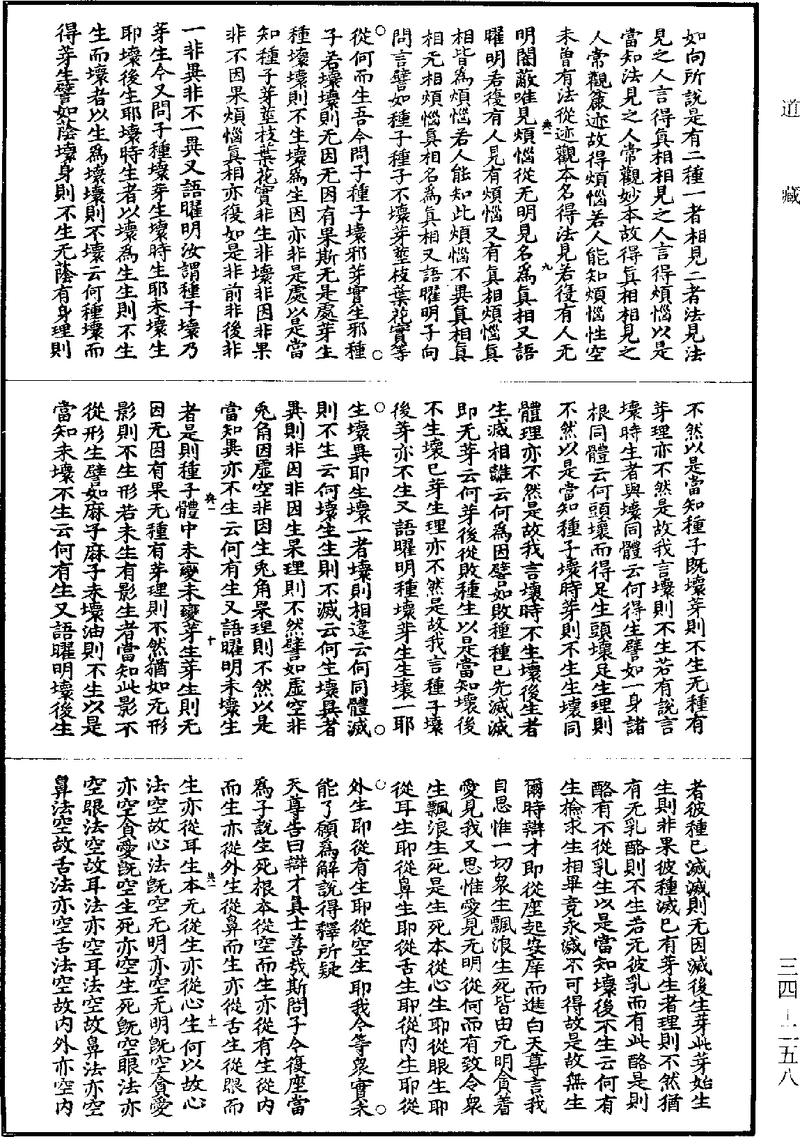 道藏
如向所說是有二種一者相見二者法見法
見之人言得真相相見之人言得煩惱以是
當知法見之人常觀妙本故得真相相見之
人常觀麄迹故得煩惱若人能知煩惱性空
未曾有法從迹觀本名得法見若復有人无
明闇蔽唯見煩惱從无明見名為真相又語
曜明若復有人見有煩惱又有真相煩惱真
相皆為煩惱若人能知此煩惱不異真相真
相无相煩惱真相名為真相又語曜明子向
問言譬如種子種子不壞芽莖枝葉花實等
從何而生吾今問子種子壞邪芽實生邪種
子若壞壞則无因无因有果斯无是處芽生
種壞壞則不生壞為生因亦非是處以是當
知種子芽莖枝葉花實非生非壞非因非果
非不因果煩惱真相亦復如是非前非後非
一非異非不一異又語曜明汝謂種子壞乃
芽生今又問子種壞芽生壞時生耶未壞生
耶壞後生耶壞時生者以壞為生生則不生
生而壞者以生為壞壞則不壞云何種壞而
得芽生譬如蔭壞身則不生无蔭有身理則
不然以是當知種子既壞芽則不生无種有
芽理亦不然是故我言壞則不生若有說言
壞時生者與壞同體云何得生譬如一身諸
根同體云何頭壞而得足生頭壞足生理則
不然以是當知種子壞時芽則不生生壞同
體理亦不然是故我言壞時不生壞後生者
生滅相離云何為因譬如敗種種已先滅滅
即无芽云何芽後從敗種生以是當知壞後
不生壞已芽生理亦不然是故我言種子壞
後芽亦不生又語曜明種壞芽生生壞一耶
生壞異耶生壞一者壞則相違云何同體滅
則不生云何壞生生則不滅云何生壞異者
異則非因非因生果理則不然譬如虛空非
兎角因虛空非因生兎角果理則不然以是
當知異亦不生云何有生又語曜明未壞生
者是則種子體中未變未變芽生芽生則无
因无因有果无種有芽理則不然猶如无形
影則不生形若未生有影生者當知此影不
從形生譬如麻子麻子未壞油則不生以是
當知未壞不生云何有生又語曜明壞後生
者彼種已滅滅則无因滅後生芽此芽始生
生則非果彼種滅已有芽生者理則不然猶
有无乳酪則不生若无彼乳而有此酪是則
酪有不從乳生以是當知壞後不生云何有
生檢求生相畢竟永滅不可得故是故無生
爾時辯才即從座起安庠而進白天尊言我
自思惟一切衆生飄浪生死皆由无明貪著
愛見我又思惟愛見无明從何而有致令衆
生飄浪生死是生死本從心生耶從眼生耶
從耳生耶從鼻生耶從舌生耶從内生耶從
外生耶從有生耶從空生耶我今等衆實未
能了願為解說得釋所疑
天尊告曰辯才真士善哉斯問子今復座當
為子說生死根本從空而生亦從有生從内
而生亦從外生從鼻而生亦從舌生從眼而
生亦從耳生本无從生亦從心生何以故心
法空故心法既空无明亦空无明既空貪愛
亦空貪愛既空生死亦空生死既空眼法亦
空眼法空故耳法亦空耳法空故鼻法亦空
鼻法空故舌法亦空舌法空故内外亦空内
三四—二五八